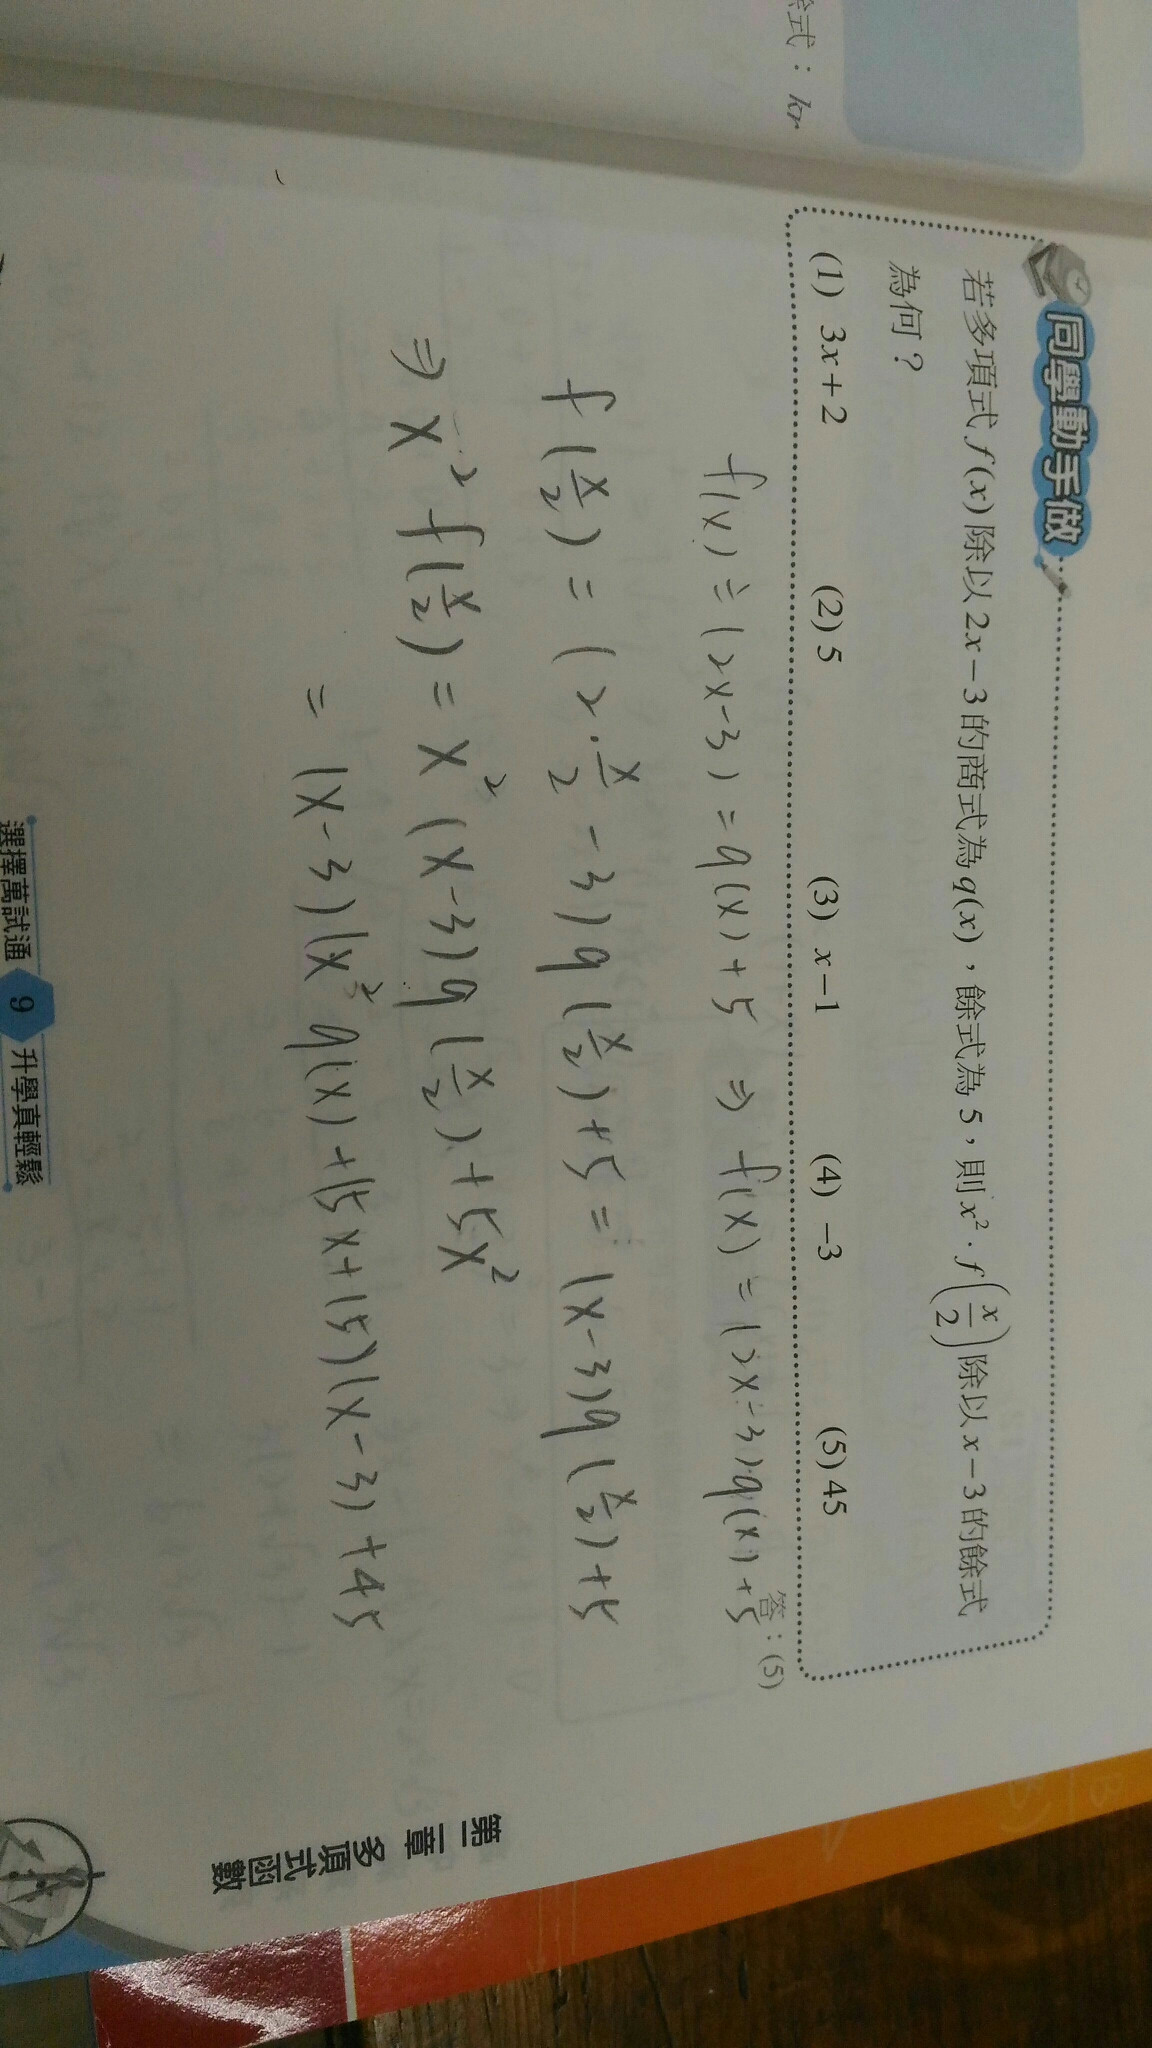 餘式：kr
同學動手做
若多項式 f(x) 除以 2x−3 的商式為 q(x)，餘式為 5，則 x²·f(x/2) 除以 x−3 的餘式
為何？
(1) 3x+2 (2) 5 (3) x−1 (4) −3 (5) 45
答：(5)
f(x) ÷ (2x-3) = q(x) + 5 ⇒ f(x) = (2x-3)q(x) + 5
f(x/2) = (2·x/2 - 3)q(x/2) + 5 = (x-3)q(x/2) + 5
⇒ x² f(x/2) = x² (x-3)q(x/2) + 5x²
= (x-3)(x² q(x) + (5x+15)(x-3) + 45
第二章 多項式函數
選擇萬試通 9 升學真輕鬆